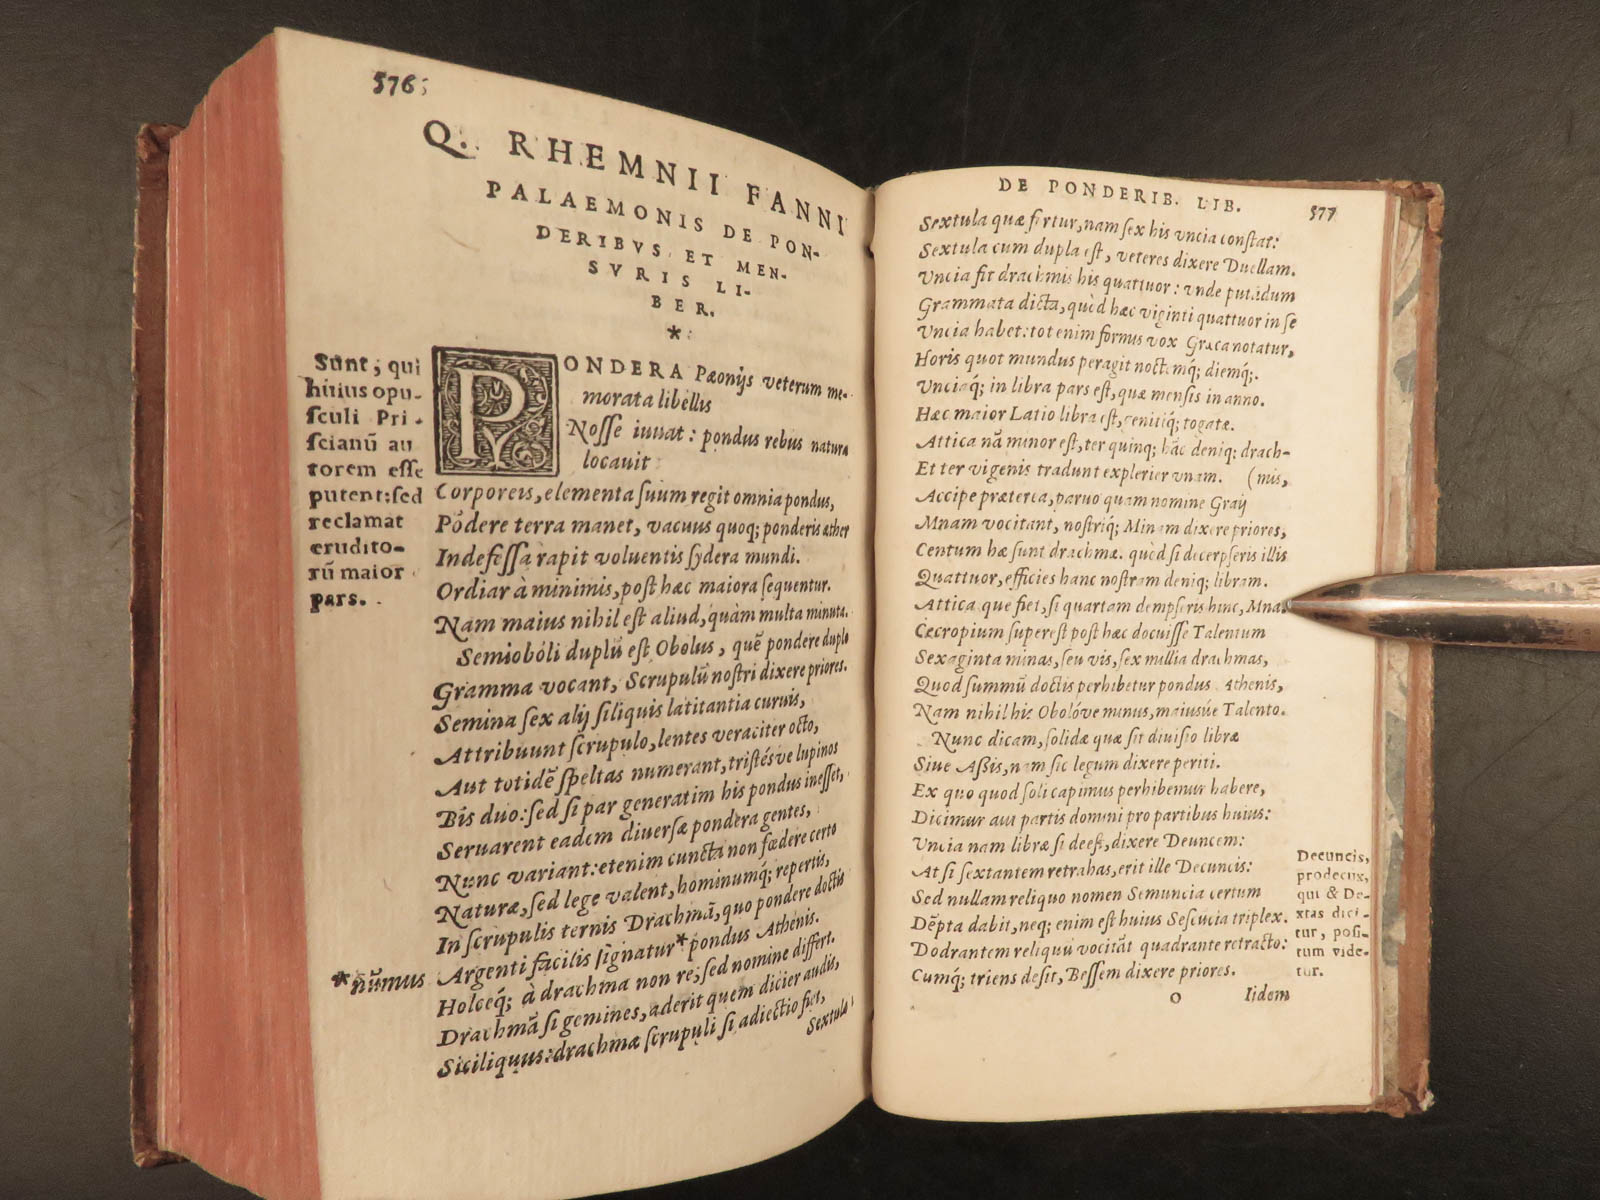 576
Q. RHEMNII FANNI
PALAEMONIS DE PON-
DERIBVS, ET MEN-
SVRIS LI-
BER.
*
Sunt, qui
huius opu-
sculi Pri-
scianū au
torem esse
putent: sed
reclamat
erudito-
rū maior
pars.
PONDERA Pæonijs veterum me-
morata libellis
Nosse iuuat: pondus rebus natura
locauit
Corporeis, elementa suum regit omnia pondus,
Pōdere terra manet, vacuus quoq; ponderis æther
Indefessa rapit voluentis sydera mundi.
Ordiar à minimis, post hæc maiora sequentur.
Nam maius nihil est aliud, quàm multa minuta.
Semioboli duplū est Obolus, quē pondere duplo
Gramma vocant, Scrupulū nostri dixere priores.
Semina sex alij siliquis latitantia curuis,
Attribuunt scrupulo, lentes veraciter octo,
Aut totidē speltas numerant, tristésve lupinos
Bis duo: sed si par generatim his pondus inesset,
Seruarent eadem diuersæ pondera gentes,
Nunc variant: etenim cuncta non fœdere certo
Naturæ, sed lege valent, hominumq́; repertis,
In scrupulis ternis Drachmā, quo pondere doctis
Argenti facilis signatur* pondus Athenis.
*nūmus
Holceq́; à drachma non re, sed nomine differt.
Drachmā si gemines, aderit quem dicier audis,
Siciliquus: drachmæ scrupuli si adiectio fiet,
Sextula
DE PONDERIB. LIB.
577
Sextula quæ fertur, nam sex his vncia constat:
Sextula cum dupla est, veteres dixere Duellam.
Vncia fit drachmis his quattuor: vnde putādum
Grammata dicta, quòd hæc viginti quattuor in se
Vncia habet: tot enim formus vox Græca notatur,
Horis quot mundus peragit noctemq́; diemq́;.
Vnciaq́; in libra pars est, quæ mensis in anno.
Hæc maior Latio libra est, gentiq́; togatæ.
Attica nā minor est, ter quinq; hāc deniq; drach-
Et ter vigenis tradunt explerier vnam. (mis,
Accipe præterea, paruo quam nomine Graij
Mnam vocitant, nostriq́; Minam dixere priores,
Centum hæ sunt drachmæ. quòd si decerpseris illis
Quattuor, efficies hanc nostram deniq; libram.
Attica que fiet, si quartam dempseris hinc, Mna.
Cecropium superest post hæc docuisse Talentum
Sexaginta minas, seu vis, sex millia drachmas,
Quod summū doctis perhibetur pondus Athenis,
Nam nihil his Obolóve minus, maiusúe Talento.
Nunc dicam, solidæ quæ sit diuisio libræ
Siue Aßis, nam sic legum dixere periti.
Ex quo quod soli capimus perhibemur habere,
Dicimur aut partis domini pro partibus huius:
Vncia nam libræ si deest, dixere Deuncem:
At si sextantem retrahas, erit ille Decuncis:
Sed nullam reliquo nomen Semuncia certum
Dēpta dabit, neq; enim est huius Sescucia triplex.
Dodrantem reliquū vocitāt quadrante retracto:
Cumq́; triens desit, Bessem dixere priores.
Decuncis,
prodecux,
qui & De-
xtas dici-
tur, posi-
tum vide-
tur.
O
Iidem